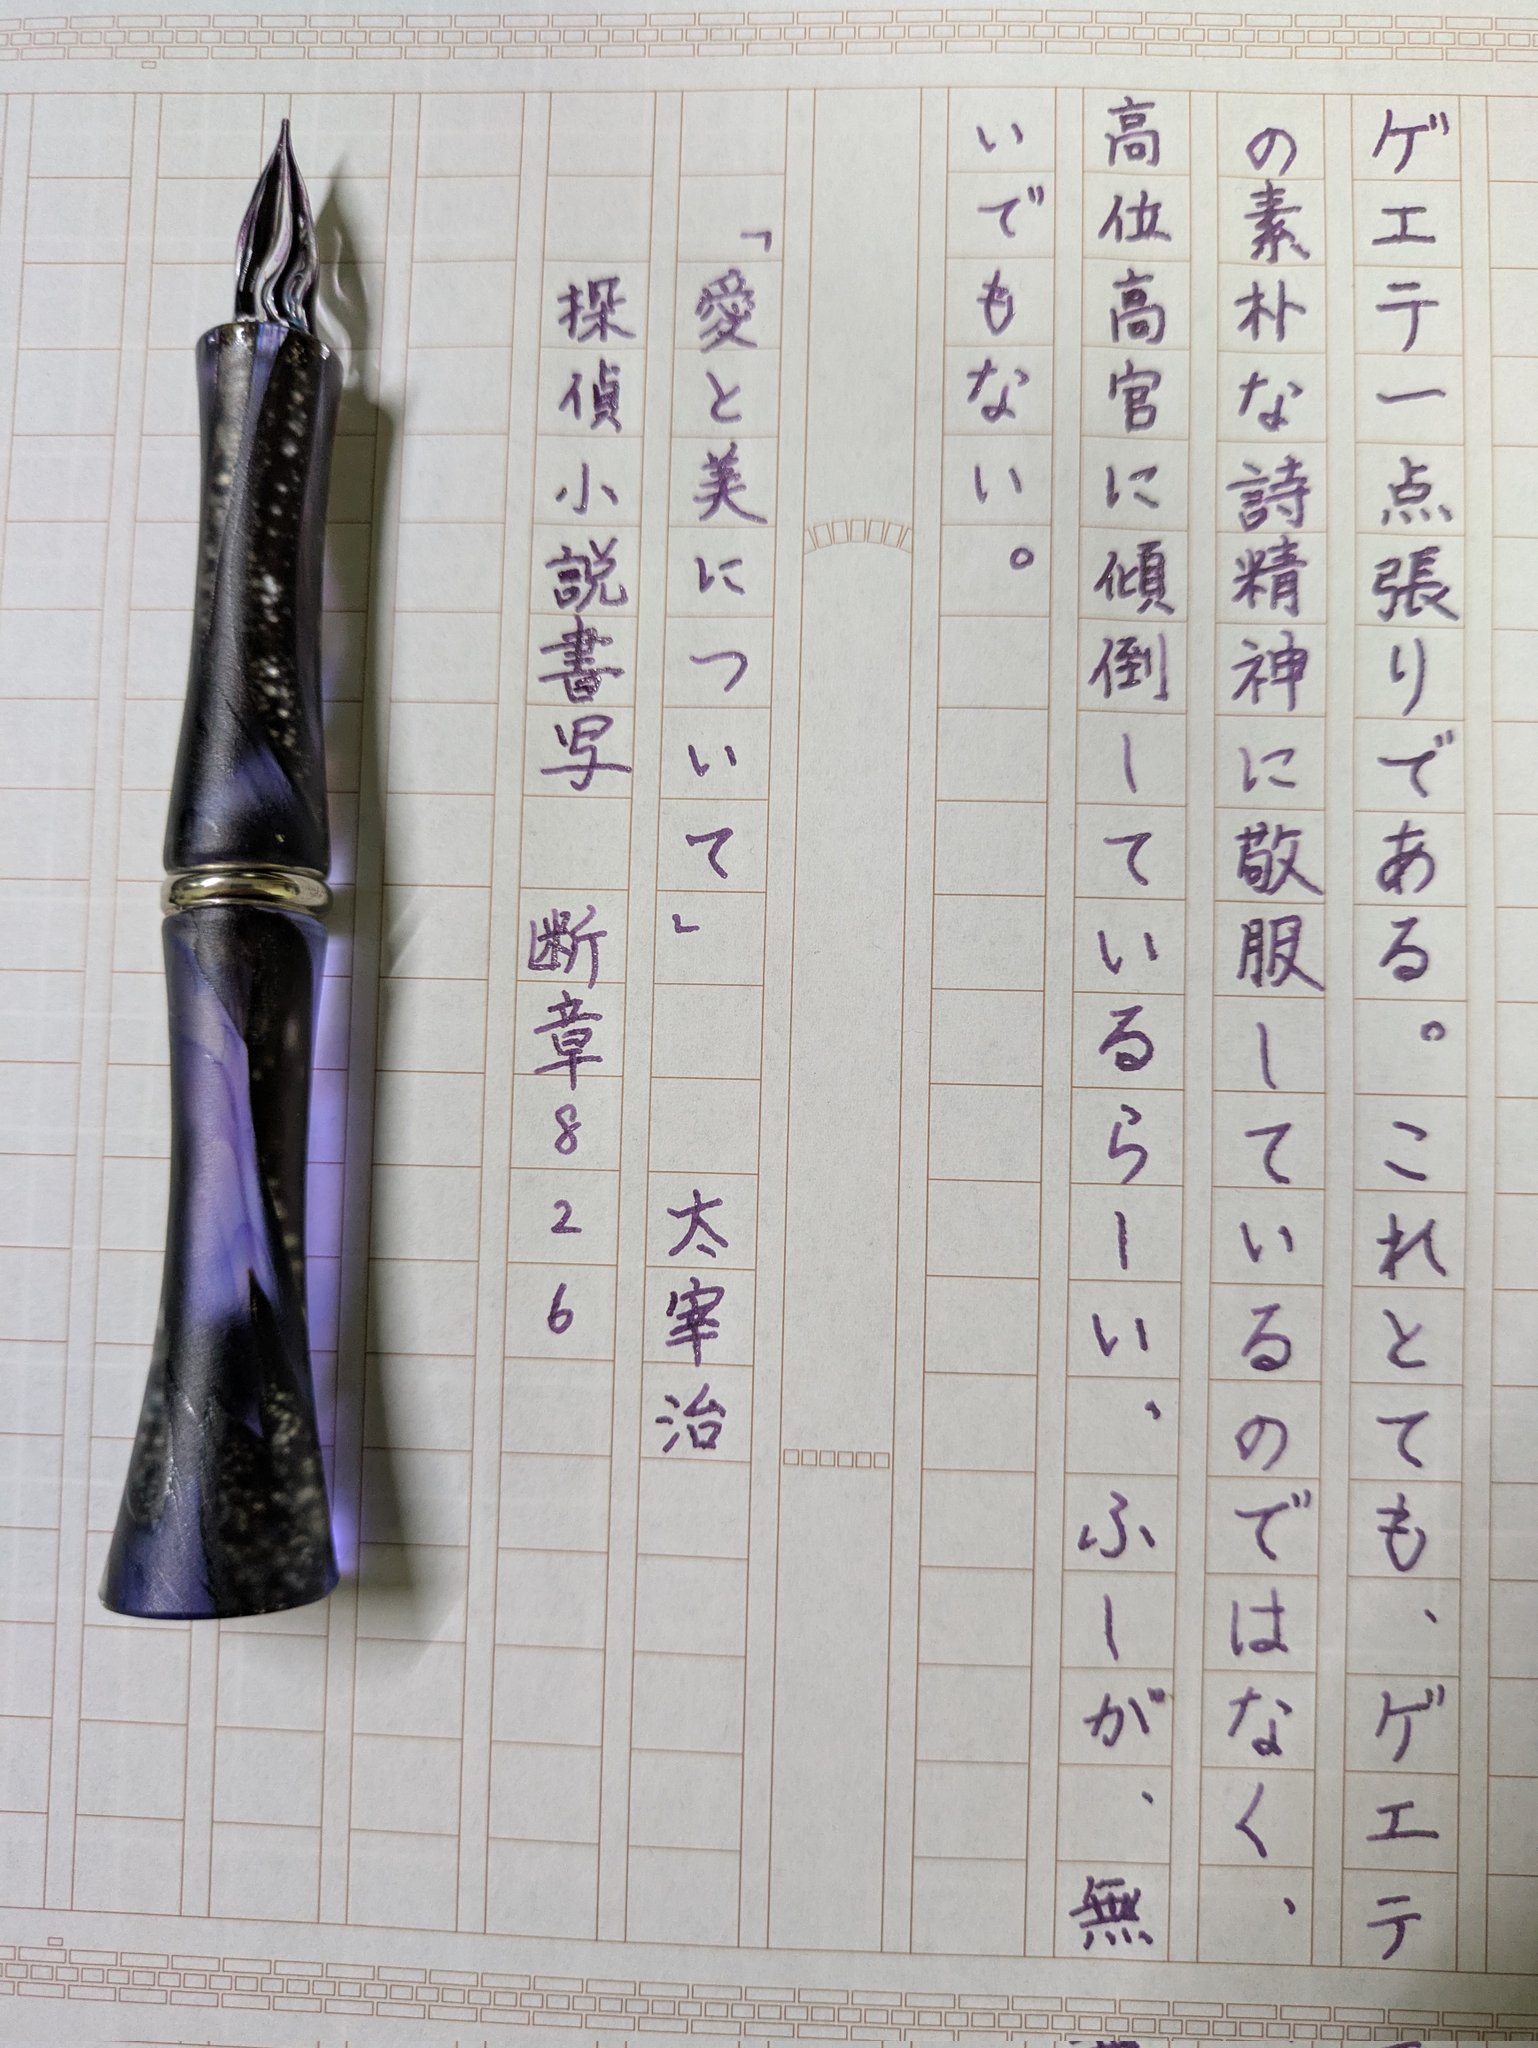 ゲエテ一点張りである。これとても、ゲエテ
の素朴な詩精神に敬服しているのではなく、
高位高官に傾倒しているらしい、ふしが、無
いでもない。
「愛と美について」　太宰治
探偵小説書写　断章826